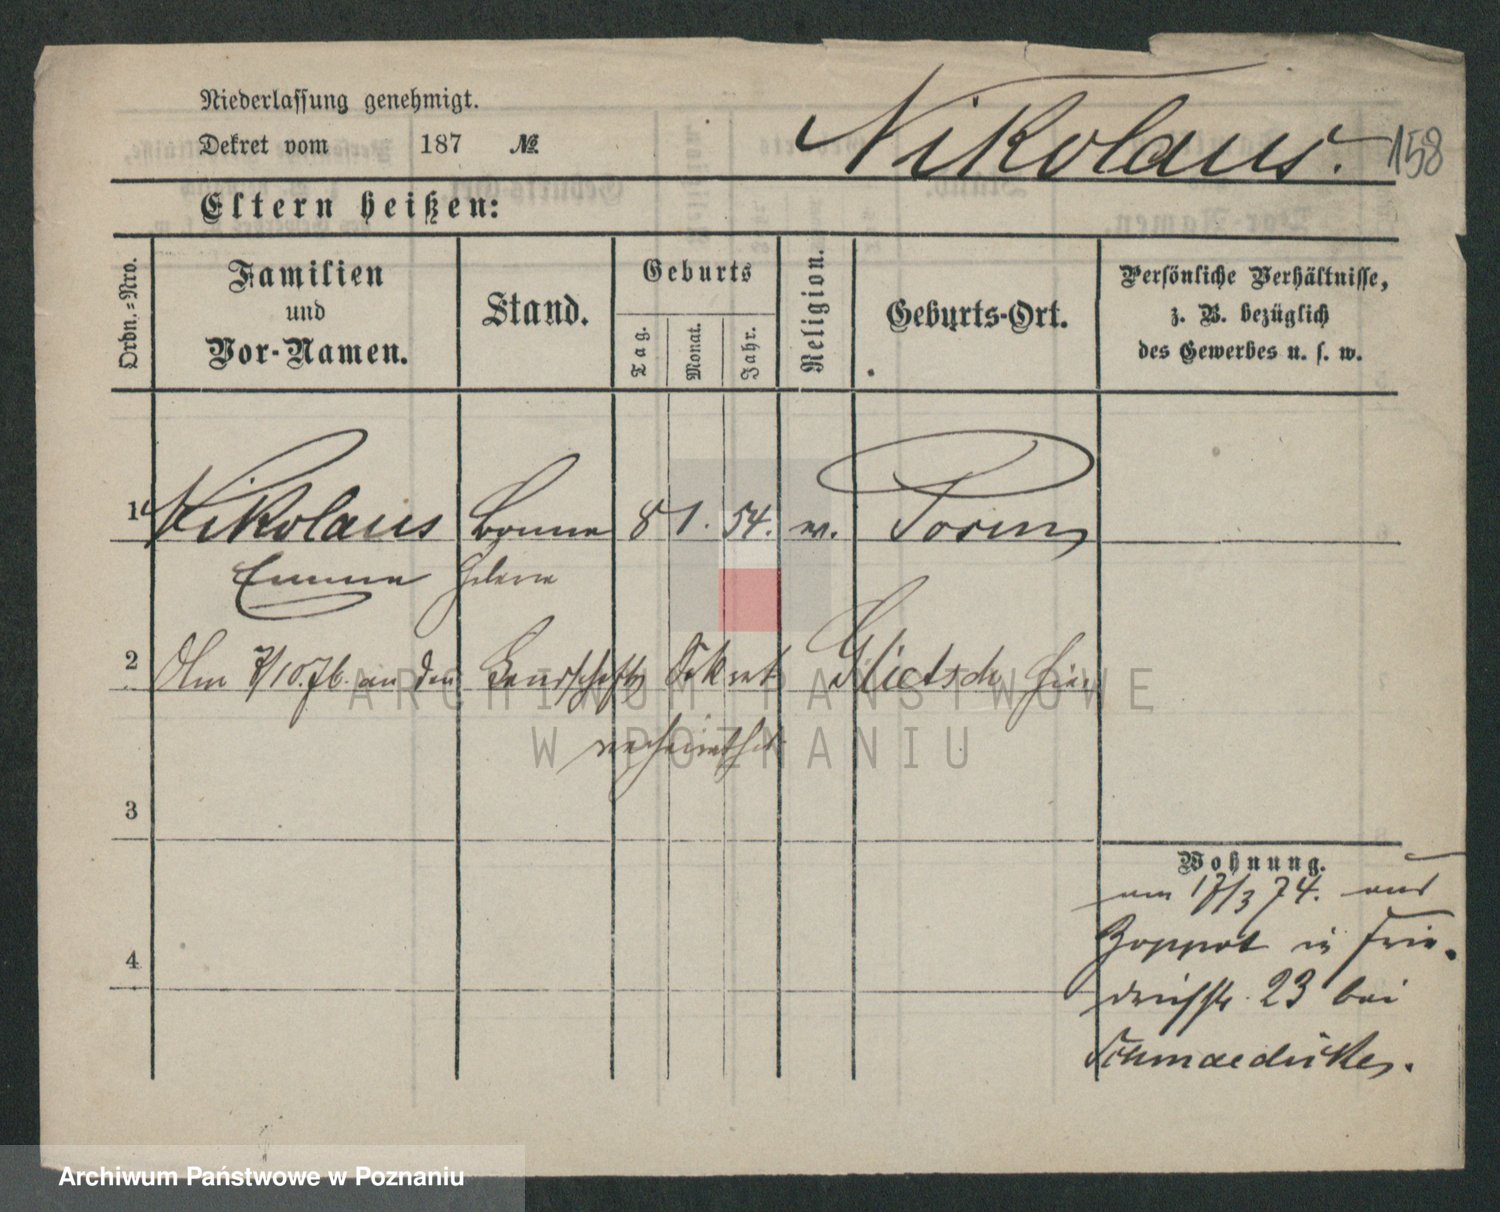 Niederlassung genehmigt.
Dekret vom 187 №
Nikolaus. 158
Eltern heißen:
Ordn.-Nro.
Familien
und
Vor-Namen.
Stand.
Geburts
Tag.
Monat.
Jahr.
Religion.
Geburts-Ort.
Persönliche Verhältnisse,
z. B. bezüglich
des Gewerbes u. s. w.
1 Nikolaus Bonne 8 1. 54. ev. Posen
Emma Helene
2 Am 7/10.76. an den Landschafts Sekret Glietsch hier
verheirathet
3
Wohnung.
am 17/3 74. aus
Zoppot in Frie-
4
drichstr. 23 bei
Schmaedicke.
ARCHIWUM PAŃSTWOWE
W POZNANIU
Archiwum Państwowe w Poznaniu